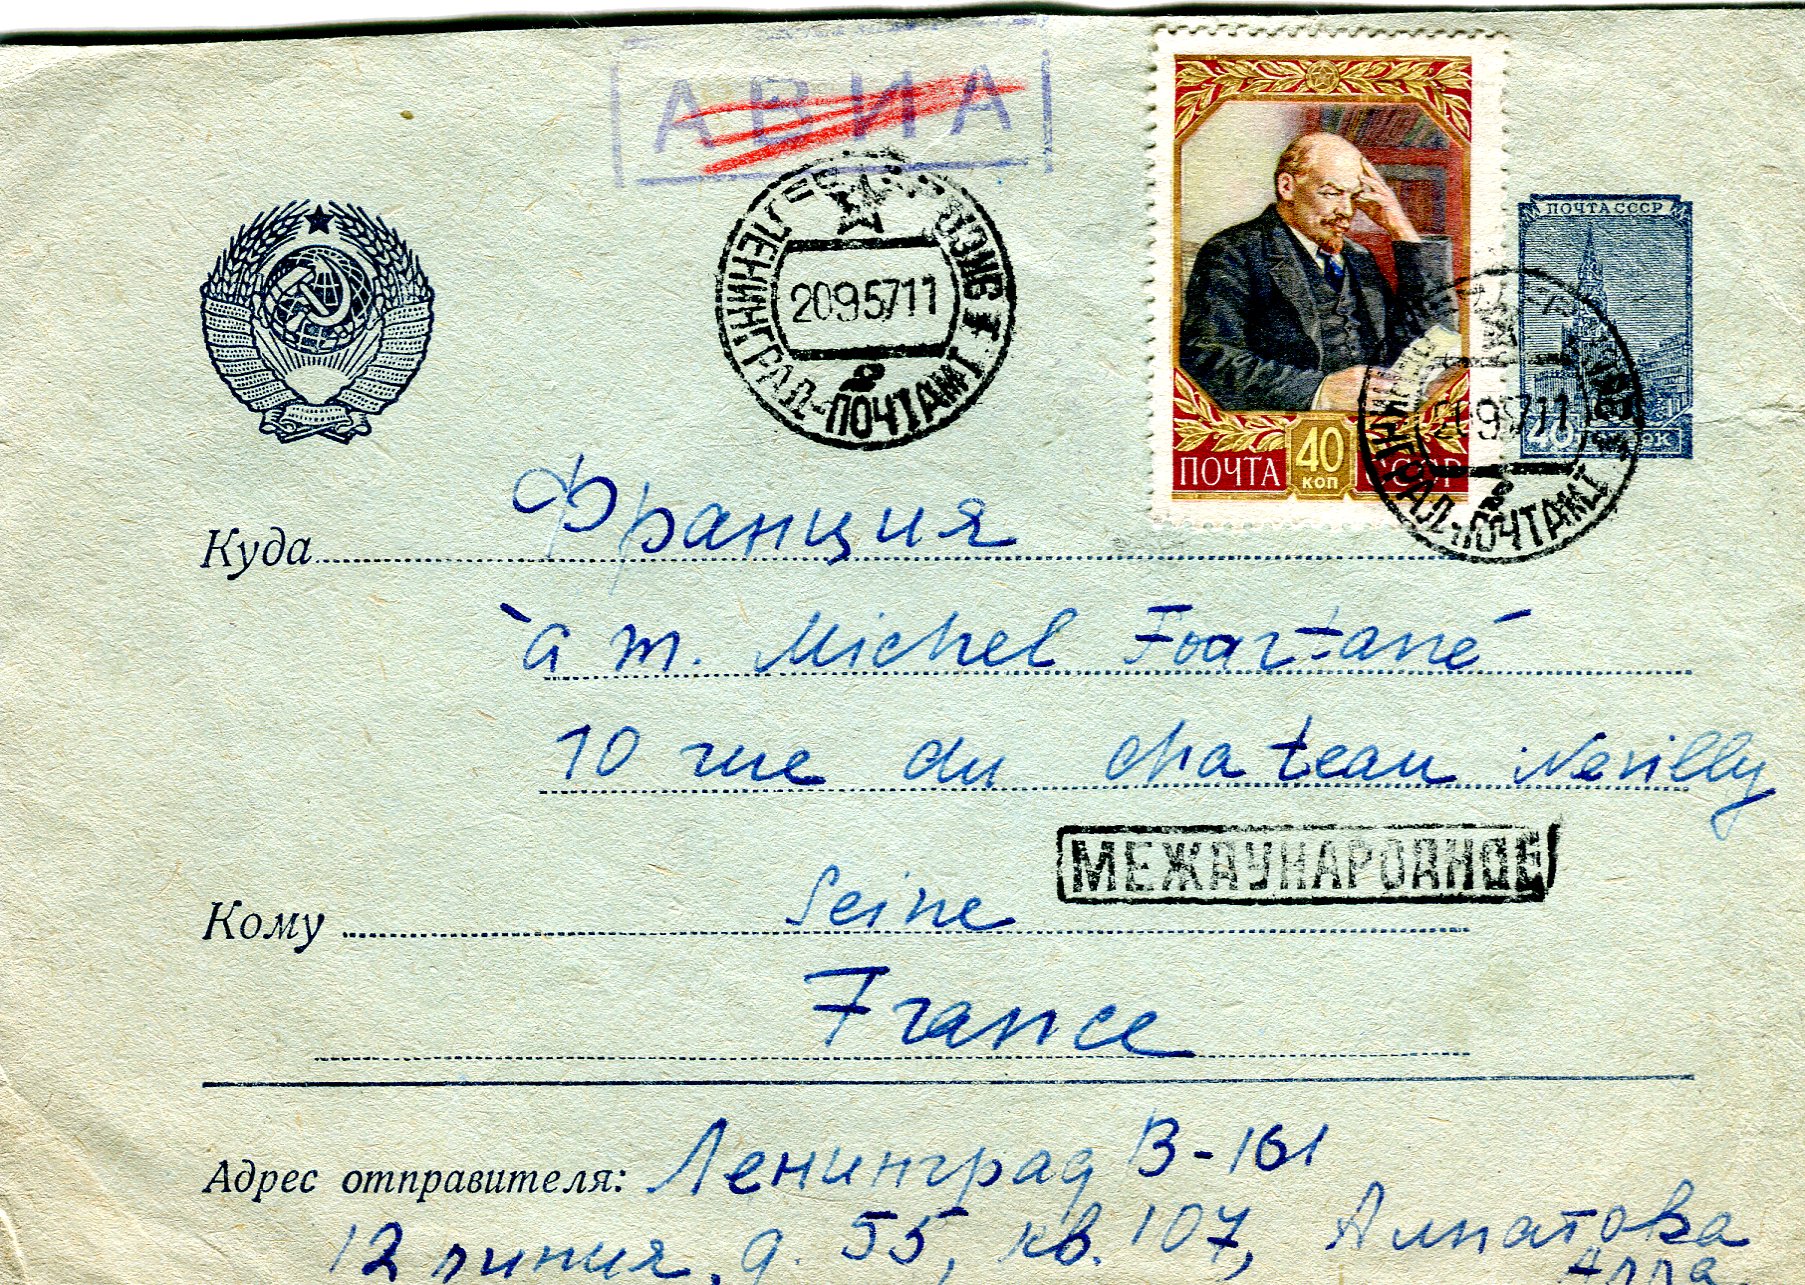 АВИА
ЛЕНИНГРАД-ПОЧТАМТ
20 9 57 11
2
ПОЧТА 40 КОП СССР
ПОЧТА СССР
40
ЛЕНИНГРАД-ПОЧТАМТ
9 57 11
Куда Франция
à m. Michel
10 rue du chateau Neuilly
МЕЖДУНАРОДНОЕ
Кому Seine
France
Адрес отправителя: Ленинград В-161
12 линия, д. 55, кв. 107, Алпатова
Алла